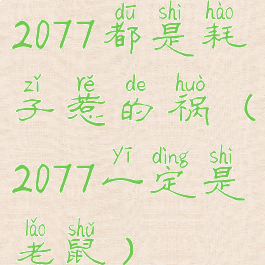 dū shì hào
2077都是耗
zǐ rě de huò
子惹的祸（
yī dìng shì
2077一定是
lǎo shǔ
老鼠）